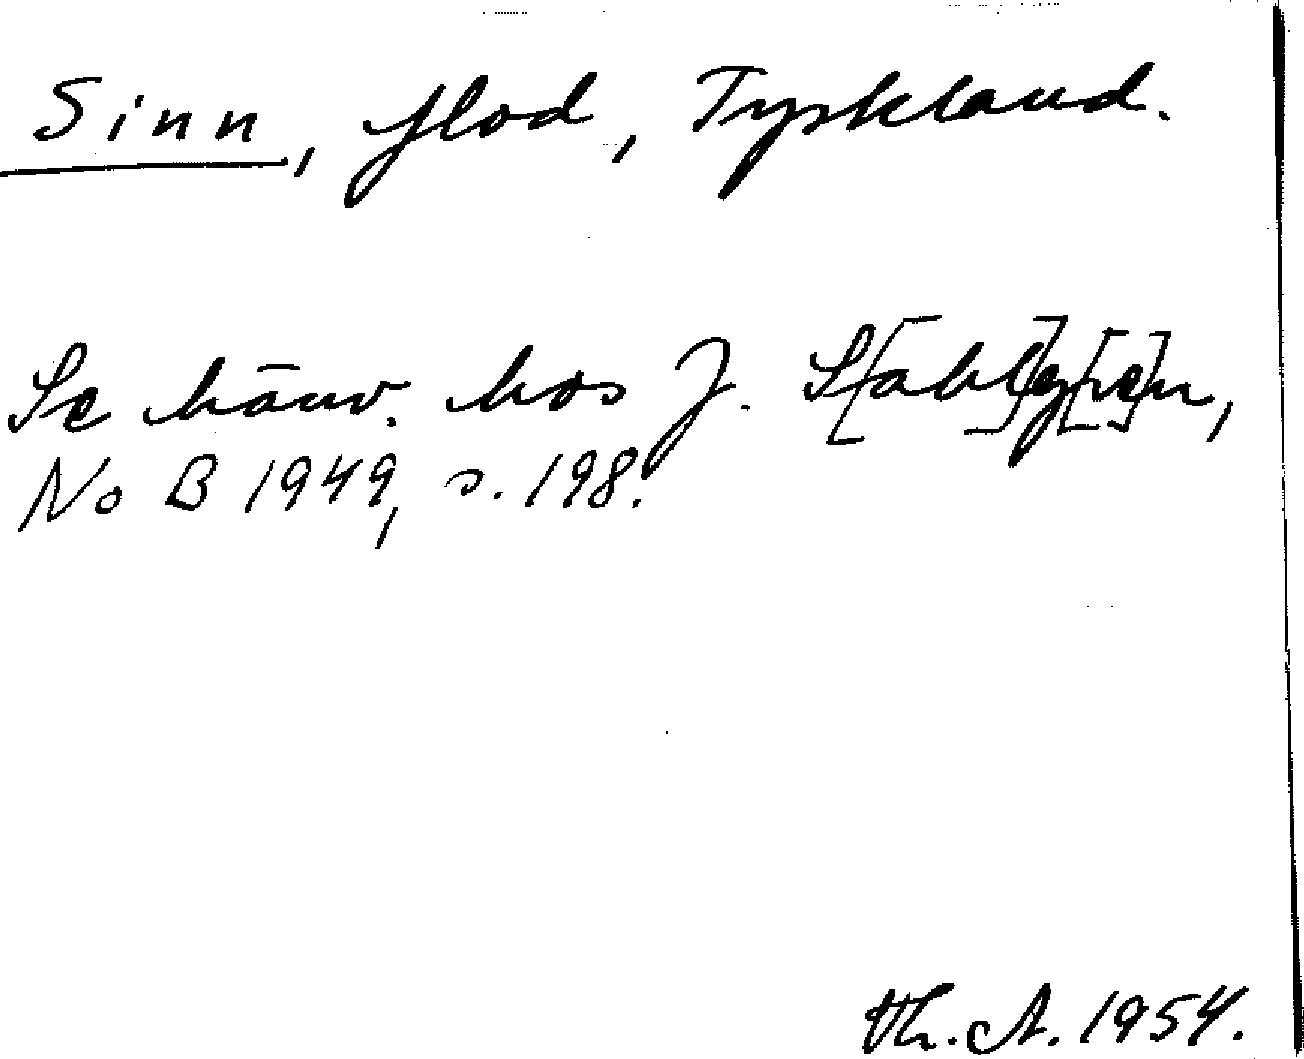 Sinn, flod, Tyskland.
Se hänv. hos J. S[ahl]g[re]n,
No B 1949, s. 198.
Th. A. 1954.